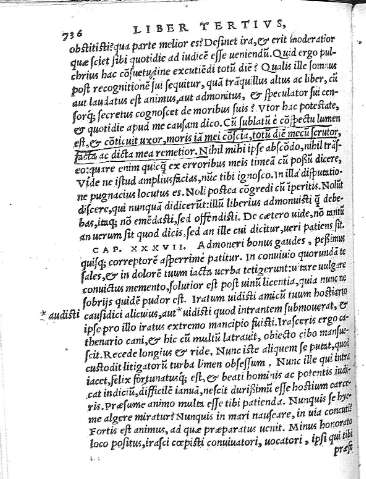 736
LIBER TERTIVS,
obstitisti? qua parte melior es? Desinet ira, & erit moderatior
quæ sciet sibi quotidie ad iudicẽ esse ueniendũ. Quid ergo pul-
chrius hac cõsuetudine excutiẽdi totũ diẽ? Qualis ille somnus
post recognitionẽ sui sequitur, quã trãquillus altus ac liber, cũ
aut laudatus est animus, aut admonitus, & speculator sui cen-
sorq; secretus cognoscet de moribus suis? Vtor hac potestate,
& quotidie apud me causam dico. Cũ sublatũ è cõspectu lumen
est, & cõticuit uxor, moris iã mei cõscia, totũ diẽ mecũ scrutor,
facta ac dicta mea remetior. Nihil mihi ipse abscõdo, nihil trãs-
eo: quare enim quicq̃ ex erroribus meis timeã cũ possũ dicere,
Vide ne istud amplius facias, nũc tibi ignosco. In illa disputatio-
ne pugnacius locutus es. Noli postea cõgredi cũ ĩperitis. Nolũt
discere, qui nunquã didicerũt: illũ liberius admonuisti q̃ debe-
bas, itaq; nõ emẽdasti, sed offendisti. De cætero uide, nõ tantũ
an uerum sit quod dicis, sed an ille cui dicitur, ueri patiens sit.
CAP. XXXVII. Admoneri bonus gaudet, pessimus
quisq; correptorẽ asperrimè patitur. In conuiuio quorundã te
sales, & in dolorẽ tuum iacta uerba tetigerunt: uitare uulgare
conuictus memento, solutior est post uinũ licentia, quia nunc ne
sobrijs quidẽ pudor est. Iratum uidisti amicũ tuum hostiario
* audisti causidici alicuius, aut* uidisti quod intrantem submouerat, &
ipse pro illo iratus extremo mancipio fuisti. Irasceris ergo ca-
thenario cani, & hic cũ multũ latrauit, obiecto cibo mansue-
scit. Recede longius & ride. Nunc iste aliquem se putat, quod
custodit litigatorũ turba limen obsessum. Nunc ille qui intra
iacet, felix fortunatusq; est, & beati hominis ac potentis iudi-
cat indiciũ, difficilẽ ianuã, nescit durissimũ esse hostium carce-
ris. Præsume animo multa esse tibi patienda. Nunquis se hye-
me algere miratur? Nunquis in mari nauseare, in uia concuti?
Fortis est animus, ad quæ præparatus uenit. Minus honorato
loco positus, irasci cœpisti conuiuatori, uocatori, ipsi qui tibi
præfe